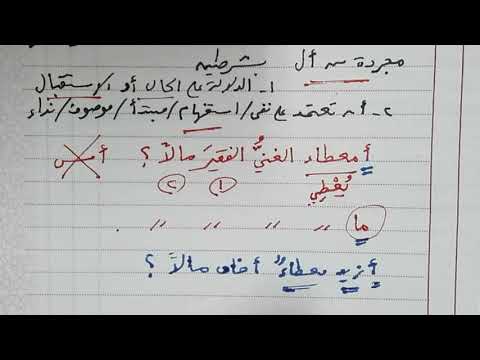 مجردة من أل بشرطين
١- الدلالة على الحال أو الاستقبال
٢- أن تعتمد على نفي/استفهام/مبتدأ/موصوف/نداء
أمعطاء الغنيُّ الفقيرَ مالاً؟ أمس
يُعْطِي ① ②
ما " " " " " .
أزيد معطاءٌ أخاه مالاً؟